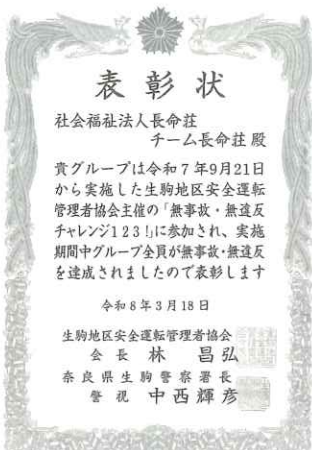 表彰状
社会福祉法人長命荘
チーム長命荘 殿
貴グループは令和7年9月21日
から実施した生駒地区安全運転
管理者協会主催の「無事故・無違反
チャレンジ123!」に参加され、実施
期間中グループ全員が無事故・無違反
を達成されましたので表彰します
令和8年3月18日
生駒地区安全運転管理者協会
会長 林 昌弘
奈良県生駒警察署長
警視 中西輝彦